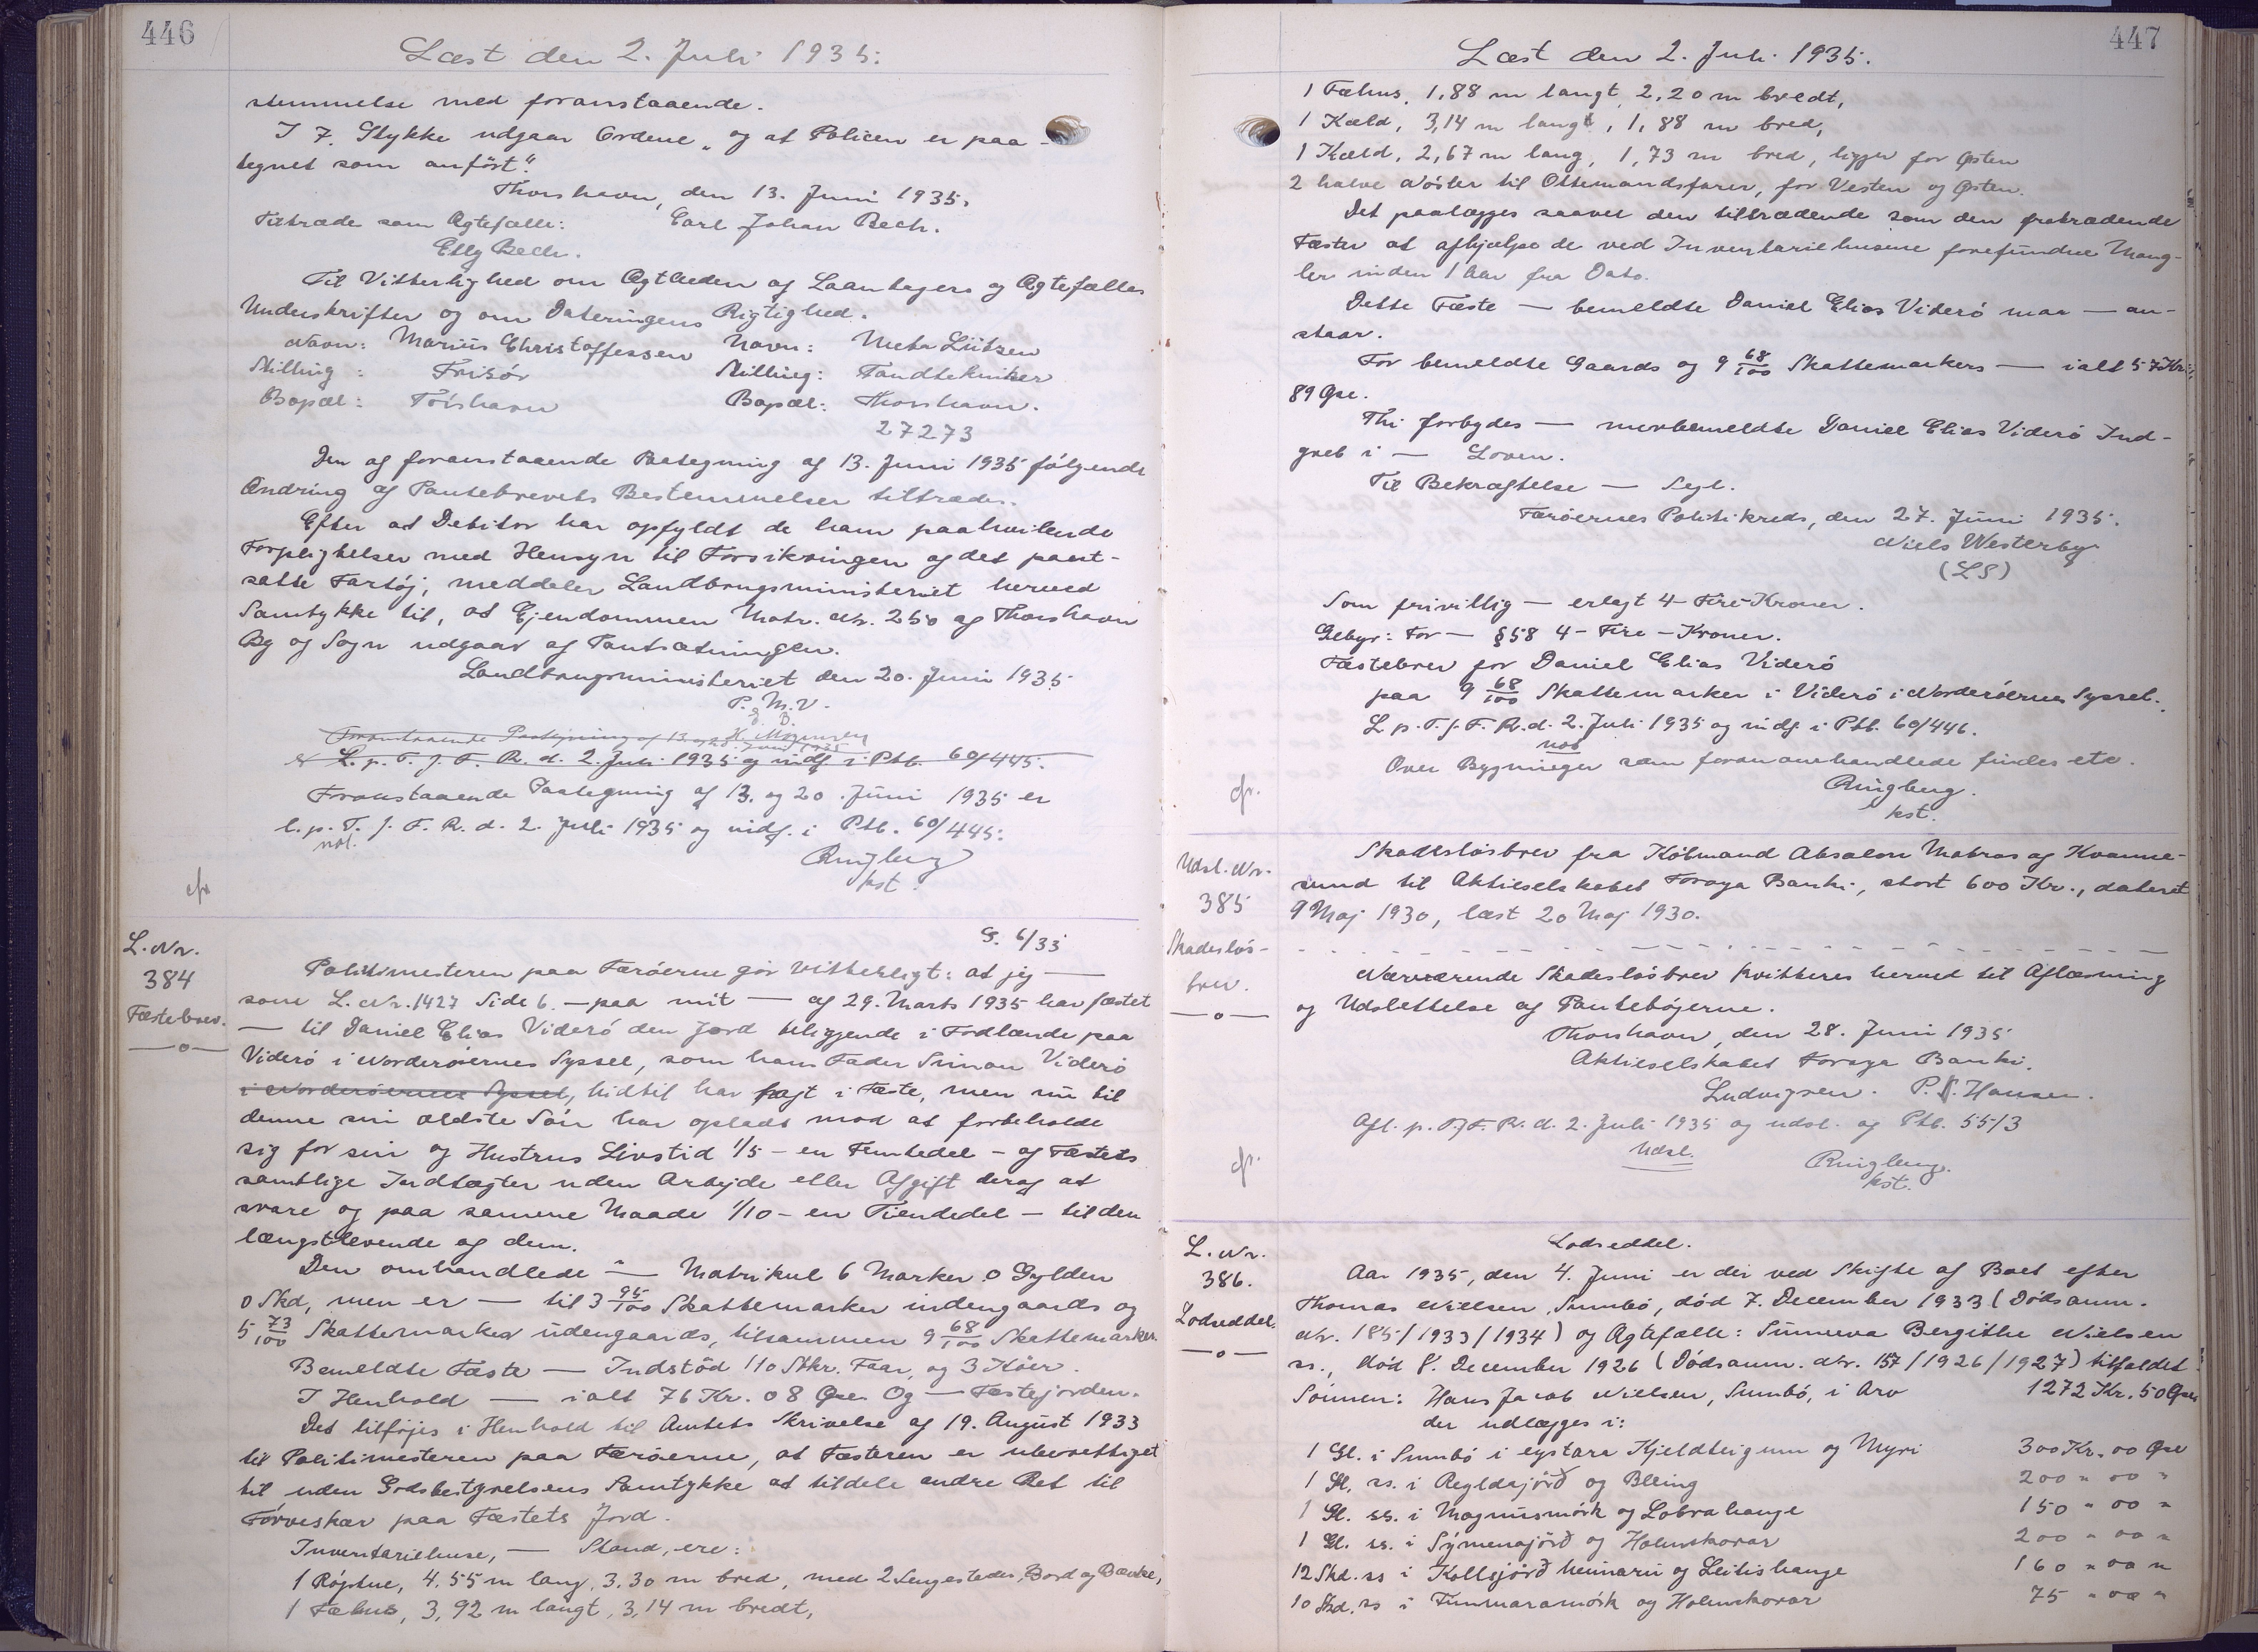 446
Læst den 2. Juli 1935.
stemmelse med foranstaaende.
I 7. Stykke udgaar Ordene „og at Policen er paa-
tegnet som anført“.
Thorshavn, den 13. Juni 1935.
Tiltræde som Ægtefælle: Carl Johan Bech.
Elly Bech.
Til Vitterlighed om Ægtheden af Laantagers og Ægtefælles
Underskrifter og om Dateringens Rigtighed.
Navn: Marius Christoffessen Navn: Meta Lützen
Stilling: Frisør Stilling: Tandtekniker
Bopæl: Tórshavn Bopæl: Thorshavn.
27273
Den af foranstaaende Paategning af 13. Juni 1935 følgende
Ændring af Pantebrevets Bestemmelser tiltrædes.
Efter at Debitor har opfyldt de ham paahvilende
Forpligtelser med Hensyn til Forsikringen af det pant-
satte Fartøj, meddeler Landbrugsministeriet herved
Samtykke til, at Ejendommen Matr. Nr. 250 af Thorshavn
By og Sogn udgaar af Pantsætningen.
Landbrugsministeriet den 20. Juni 1935
P. M. V.
E. B.
H. Mogensen
Foranstaaende Paategning af 13. og 20. Juni 1935
er L. p. T. f. F. R. d. 2. Juli 1935 og indf. i Ptb. 60/445.
Foranstaaende Paategning af 13. og 20. Juni 1935 er
l. p. T. f. F. R. d. 2. Juli 1935 og indf. i Ptb. 60/445.
not.
Ringberg
kst.
cfr.
L. Nr.
384
Fæstebrev.
—o—
G. 6/33
Politimesteren paa Færøerne gør vitterligt: at jeg —
som L. Nr. 1427 Side 6. — paa mit — af 29. Marts 1935 har fæstet
— til Daniel Elias Viderø den Jord beliggende i Fodlænde paa
Viderø i Norderøernes Syssel, som hans Fader Simon Viderø
i Norderøernes Syssel, hidtil har havt i Fæste, men nu til
denne sin ældste Søn har opladt mod at forbeholde
sig for sin og Hustrus Livstid 1/5 - en Femtedel - af Fæstets
samtlige Indtægter uden Arbejde eller Afgift deraf at
svare og paa samme Maade 1/10 - en Tiendedel - til den
længstlevende af dem.
Den omhandlede — Matrikul 6 Marker 0 Gylden
0 Skd, men er — til 3 95/100 Skattemarker indengaards og
5 73/100 Skattemarker udengaards, tilsammen 9 68/100 Skattemarker.
Bemeldte Fæste — Indstød 110 Stkr. Faar, og 3 Køer.
I Henhold — ialt 76 Kr. 08 Øre. Og — Fæstejorden.
Det tilføjes i Henhold til Amtets Skrivelse af 19. August 1933
til Politimesteren paa Færøerne, at Fæsteren er uberettiget
til uden Godsbestyrelsens Samtykke at tildele andre Ret til
Tørveskær paa Fæstets Jord.
Inventariehuse, — Stand, ere:
1 Røgstue, 4.55 m lang, 3.30 m bred, med 2 Sengesteder, Bord og Bænke,
1 Fæhus, 3,92 m langt, 3,14 m bredt,
447
Læst den 2. Juli 1935.
1 Fæhus, 1,88 m langt 2,20 m bredt,
1 Kæld, 3,14 m langt, 1,88 m bred,
1 Kæld, 2,67 m lang, 1,73 m bred, ligger for Østen
2 halve Nöster til Ottemandsfarer, for Vesten og Østen.
Det paalægges saavel den tiltrædende som den fratrædende
Fæster at afhjælpe de ved Inventariehusene forefundne Mang-
ler inden 1 Aar fra Dato.
Dette Fæste — bemeldte Daniel Elias Viderø maa — an-
staar.
For bemeldte Gaards og 9 68/100 Skattemarkers — ialt 57 Kr.
89 Øre.
Thi forbydes — merbemeldte Daniel Elias Viderø Ind-
greb i — Loven.
Til Bekræftelse — Segl.
Færøernes Politikreds, den 27. Juni 1935.
Niels Westerby
(LS)
Som frivillig — erlagt 4 - Fire Kroner.
Gebyr: For — §58 4 - Fire - Kroner.
Fæstebrev for Daniel Elias Viderø
paa 9 68/100 Skattemarker i Viderø i Norderøernes Syssel.
L. p. T. f. F. R. d. 2. Juli 1935 og indf. i Ptb. 60/446.
not
Over Bygninger som foran omhandlede findes etc.
Ringberg.
kst.
cfr.
Udsl. Nr.
385
Skadesløs-
brev.
—o—
Skadesløsbrev fra Købmand Absalon Matras af Kvanne-
sund til Aktieselskabet Føroya Banki, stort 600 Kr., dateret
9 Maj 1930, læst 20 Maj 1930.
Nærværende Skadesløsbrev kvitteres herved til Aflæsning
og Udslettelse af Pantebøgerne.
Thorshavn, den 28. Juni 1935
Aktieselskabet Føroya Banki.
Ludvigsen. P. J. Hansen.
Afl. p. T. f. F. R. d. 2. Juli 1935 og udsl. af Ptb. 55/3
Udsl.
Ringberg.
kst.
cfr.
L. Nr.
386.
Lodseddel.
—o—
Lodseddel.
Aar 1935, den 4. Juni er der ved Skifte af Boet efter
Thomas Nielsen, Sumbø, død 7. December 1933 (Dødsanm.
Nr. 185/1933/1934) og Ægtefælle: Sunneva Bergithe Nielsen
ss., død 8. December 1926 (Dødsanm. Nr. 157/1926/1927) tilfaldet
Sönnen: Hans Jacob Nielsen, Sumbø, i Arv 1272 Kr. 50 Øre
der udlægges i:
1 Gl. i Sumbø i eystara Kjeldteigum og Myri 300 Kr. 00 Øre
1 Gl. ss. i Regldajørð og Bleing 200 " 00 "
1 Gl. ss. i Magnusmørk og Lobrahauge 150 " 00 "
1 Gl. ss. i Sýmenajørð og Holmskorar 200 " 00 "
12 Skd. ss i Kollsjørð heimaru og Leitishauge 160 " 00 "
10 Skd. ss i Finnmaramørk og Holmskorar 75 " 00 "